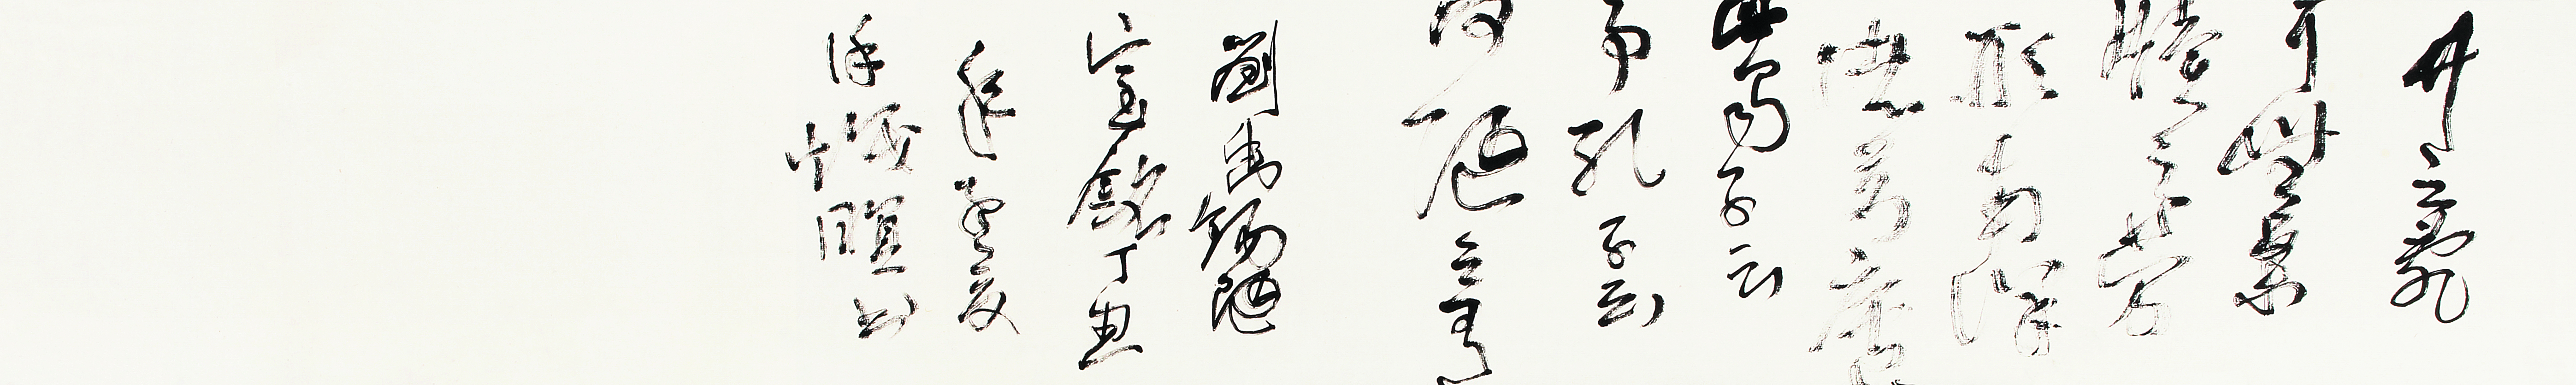 竹之亂
耳無案
牘之勞
形南陽
諸葛廬
西蜀子云
亭孔子云
何陋之有
劉禹錫陋
室銘丁丑
年孟夏